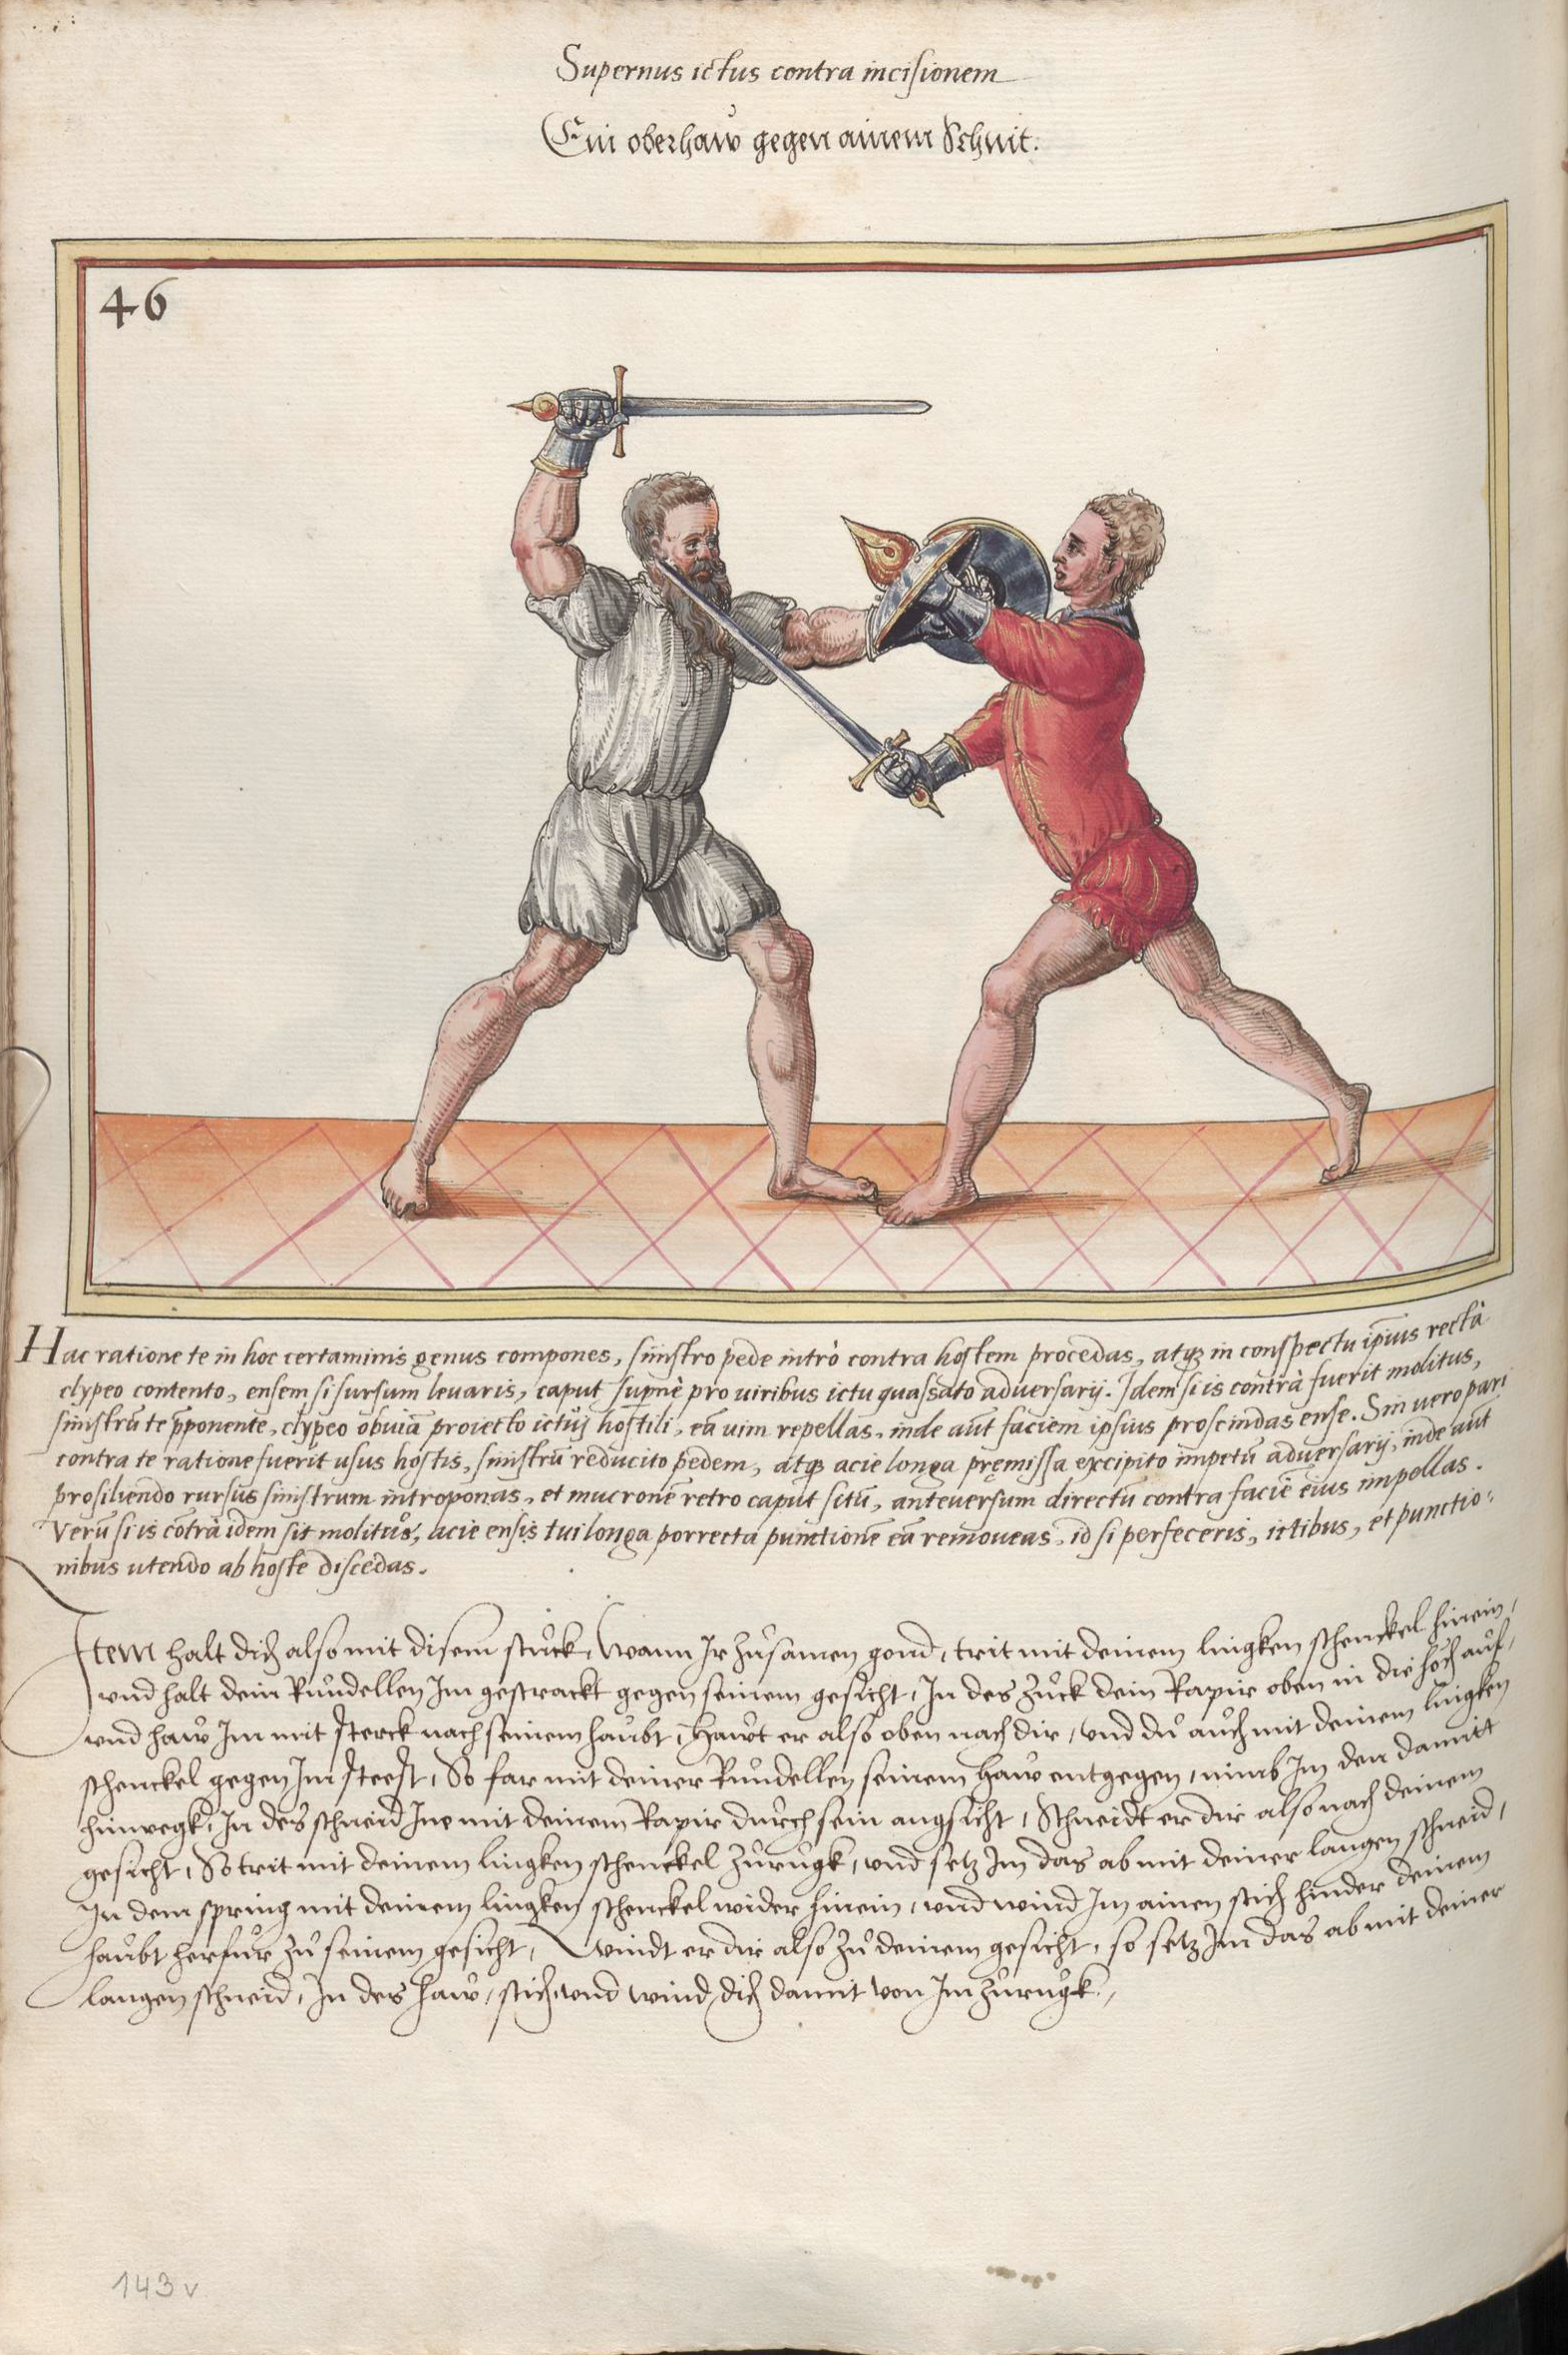 Supernus ictus contra incisionem
Ein oberhaw gegen ainem Schnit.
46
Hac ratione te in hoc certaminis genus compones, sinistro pede intrò contra hostem procedas, atqꝫ in conspectu ip̄ius rectà
clypeo contento, ensem si sursum levaris, caput supernè pro viribus ictu quassato adversarij. Idem si is contrà fuerit molitus,
sinistrū te p̄ponente, clypeo obviā proiecto ictuj hostili, eā vim repellas, inde aūt faciem ipsius proscindas ense. Sin vero pari
contra te ratione fuerit usus hostis, sinistrū reducito pedem, atqꝫ acie longa pręmissa excipito impetū adversarij, inde aūt
prosiliendo rursus sinistrum introponas, et mucronē retro caput sitū, anteversum directū contra faciē eius impellas.
Verū si is cōtrà idem sit molitus, acie ensis tui longa porrecta punctionē eā removeas, id si perfeceris, ictibus, et punctio:
nibus utendo ab hoste discedas.
Item halt dich also mit disem stuck, Wann Ir zusamen gond, trit mit deinem lingken schenckel hinein,
und halt dein Rundellen Im gestrackt gegen seinem gesicht, In des zuck dein Rapir oben in die höch auf,
und haw Im mit sterck nach seinem haubt, Hawt er also oben nach dir, und du auch mit deinem lingken
schenckel gegen Im steest, So far mit deiner Rundellen seinem Haw entgegen, nimb Im den damitt
hinwegk, In des schneid Ine mit deinem Rapir durch sein angsicht, Schneidt er dir also nach deinem
gesicht, So trit mit deinem lingken schenckel zurugk, und setz Im das ab mit deiner langen schneid,
In dem spring mit deinem lingken schenckel wider hinein, und wind Im ainen stich hinder deinem
haubt herfur zu seinem gesicht, Windt er dir also zu deinem gesicht, so setz Im das ab mit deiner
langen schneid, In des haw, stich und wind dich damit von Im zurugk.
143 v